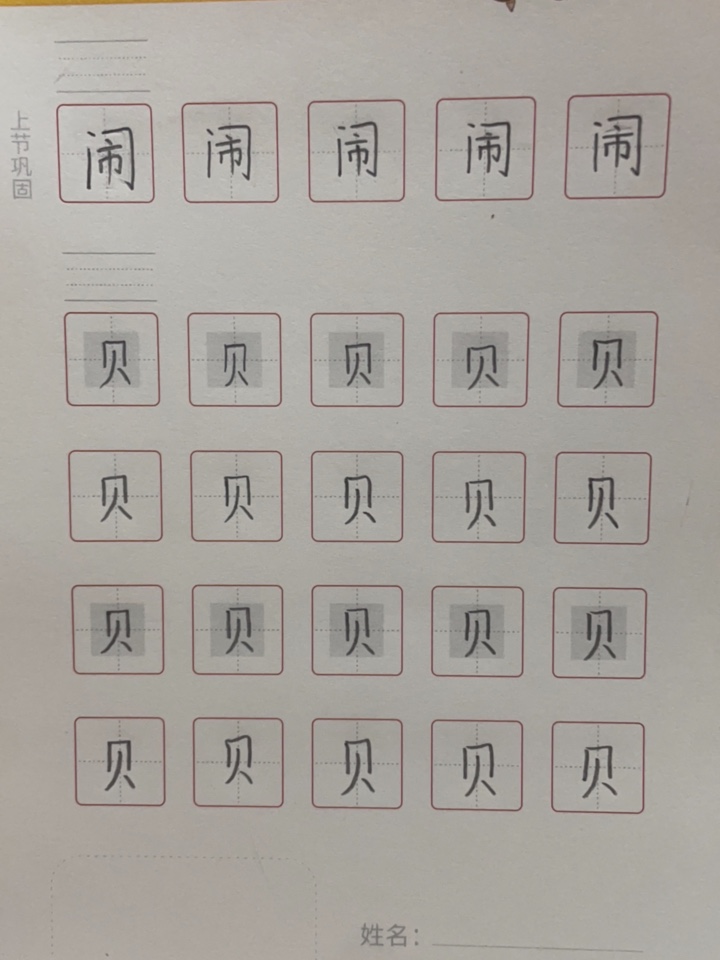 上节巩固
闹 闹 闹 闹 闹
贝 贝 贝 贝 贝
贝 贝 贝 贝 贝
贝 贝 贝 贝 贝
贝 贝 贝 贝 贝
姓名：